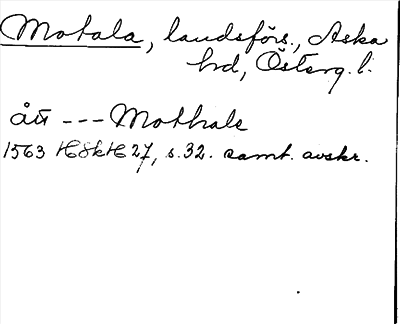 Motala, landsförs., Aska
hd, Österg. l.
ått --- Mothale
1563 HSkH 27, s. 32. samt. avskr.